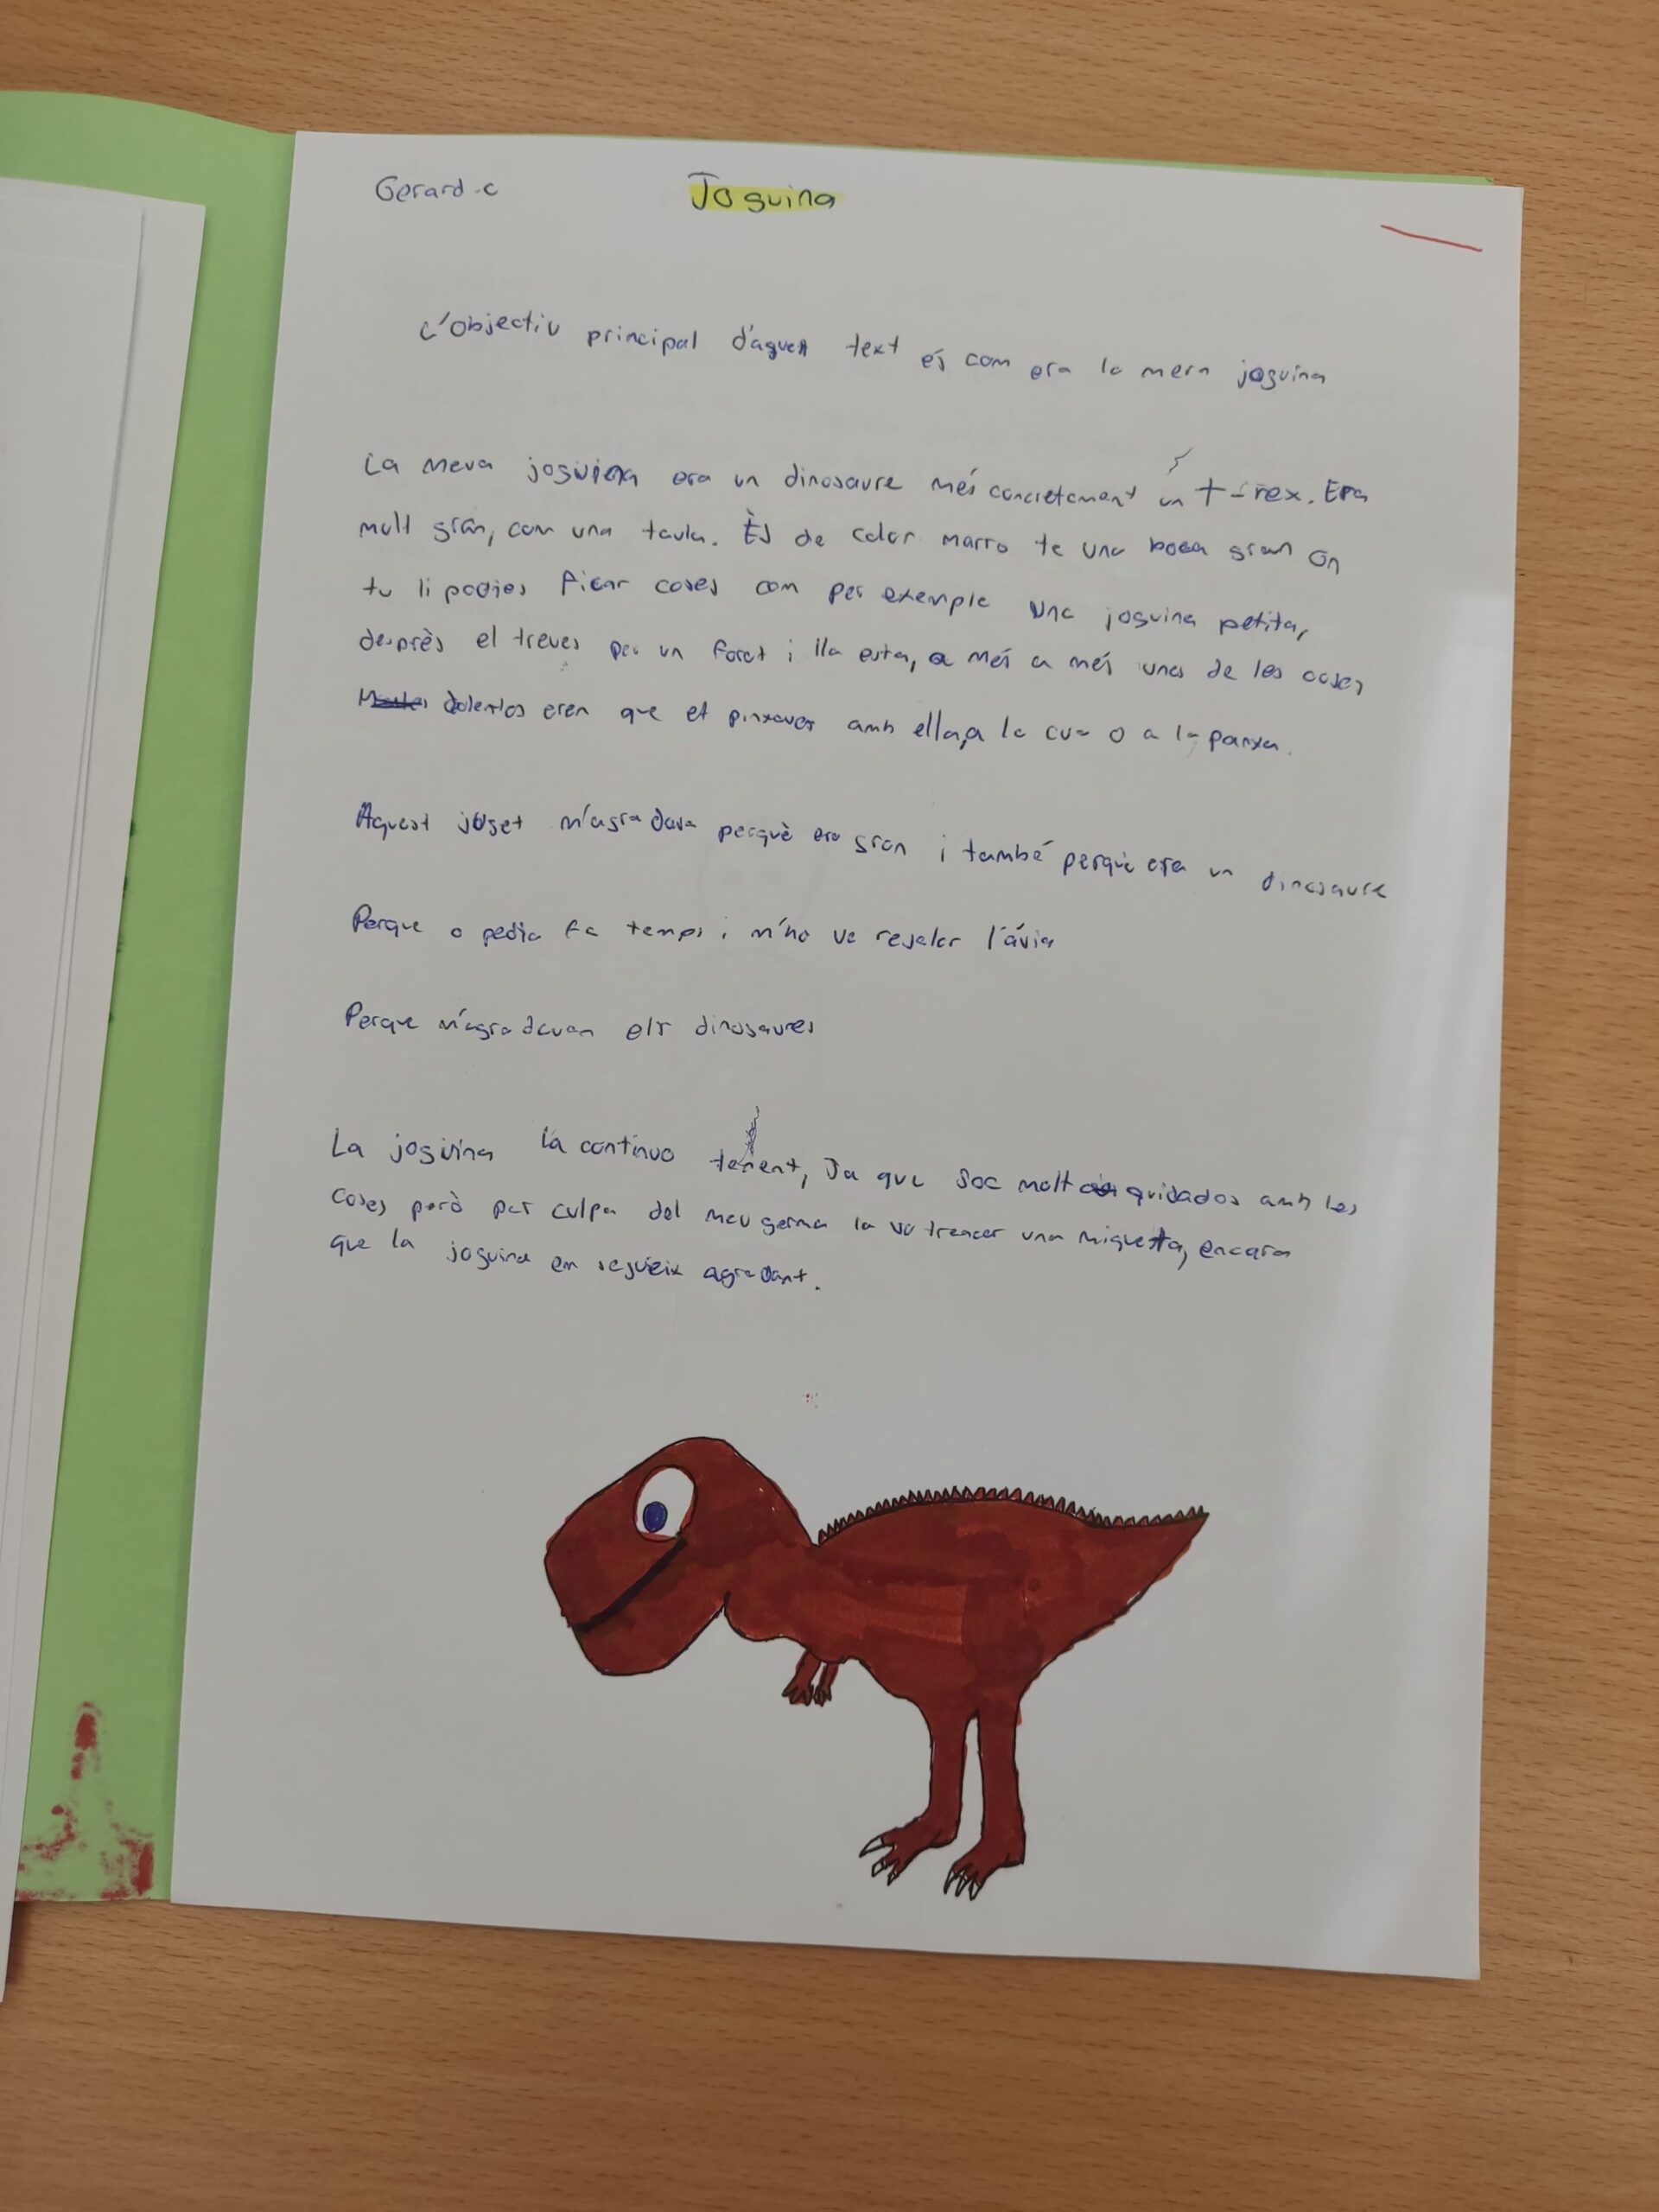 Gerard.c
Joguina
L'objectiu principal d'aquest text és com era la meva joguina
La meva joguina era un dinosaure més concretament un t-rex. Era
molt gran, com una taula. És de color marro te una boca gran on
tu li podies ficar coses com per exemple una joguina petita,
desprès el treves per un foret i lla esta, a més a més unes de les coses
dolentes eren que et pinxaves amb ella,a la cua o a la panxa.
Aquest joget m'agradava perquè era gran i també perquè era un dinosaure
Perque o pedia fa temps i m'ho va regalar l'ávia
Perque m'agradavan els dinosaures
La joguina la continuo tenent, Ja que soc molt quidados amb les
coses però per culpa del meu germa la va trencar una miqueta, encara
que la joguina em segueix agradant.